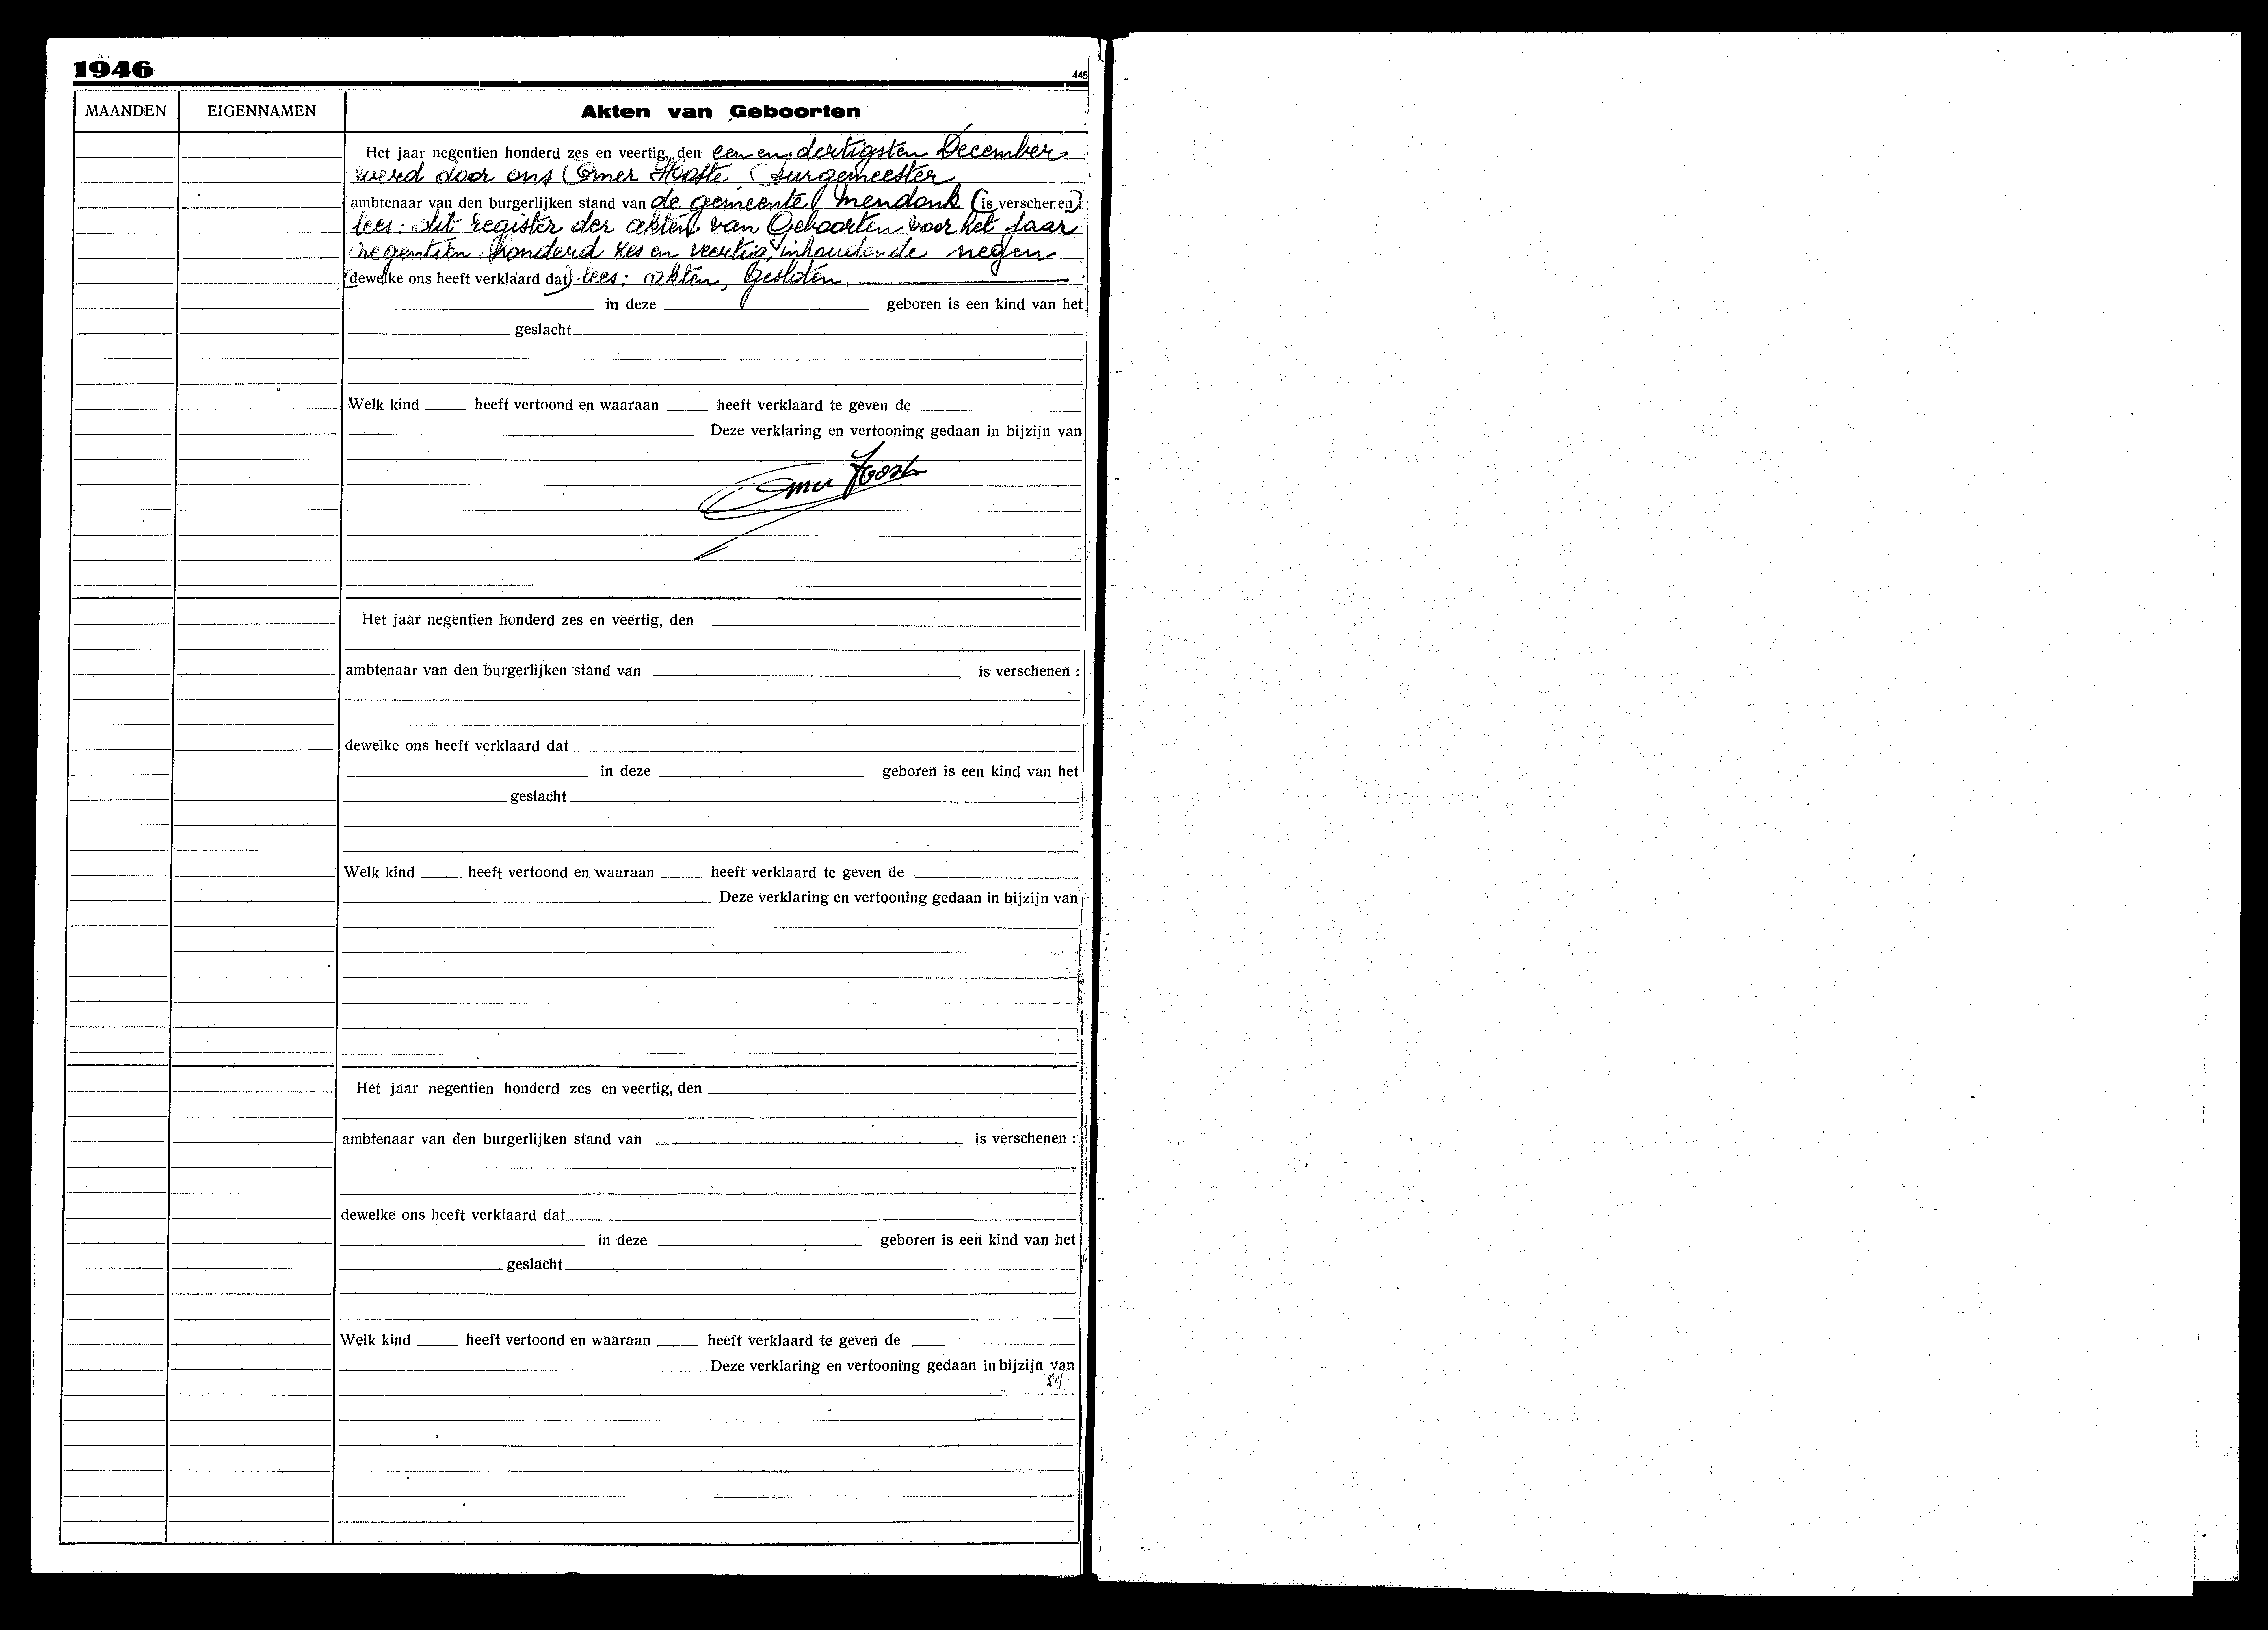 1946
445
MAANDEN EIGENNAMEN Akten van Geboorten
Het jaar negentien honderd zes en veertig, den een en dertigsten December
werd door ons Omer Hooste, Burgemeester
ambtenaar van den burgerlijken stand van de gemeente Mendonk (is verschenen)
lees: dit register der akten van Geboorten voor het jaar
negentien honderd zes en veertig, inhoudende negen
(dewelke ons heeft verklaard dat) lees: akten, gesloten.
in deze geboren is een kind van het
geslacht
Welk kind heeft vertoond en waaraan heeft verklaard te geven de
Deze verklaring en vertooning gedaan in bijzijn van
Het jaar negentien honderd zes en veertig, den
ambtenaar van den burgerlijken stand van is verschenen :
dewelke ons heeft verklaard dat
in deze geboren is een kind van het
geslacht
Welk kind heeft vertoond en waaraan heeft verklaard te geven de
Deze verklaring en vertooning gedaan in bijzijn van
Het jaar negentien honderd zes en veertig, den
ambtenaar van den burgerlijken stand van is verschenen :
dewelke ons heeft verklaard dat
in deze geboren is een kind van het
geslacht
Welk kind heeft vertoond en waaraan heeft verklaard te geven de
Deze verklaring en vertooning gedaan in bijzijn van